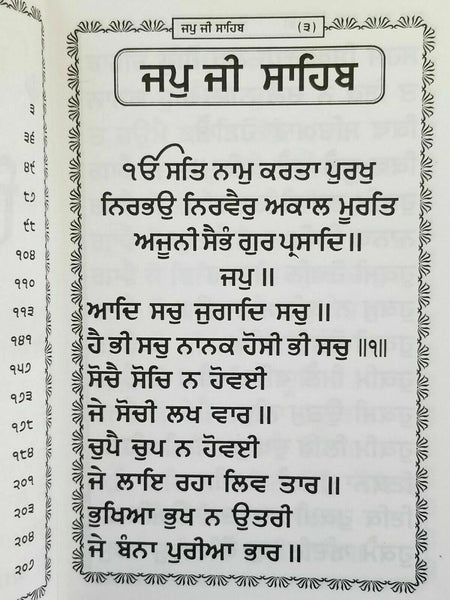 ਜਪੁ ਜੀ ਸਾਹਿਬ (੩)
ਜਪੁ ਜੀ ਸਾਹਿਬ
ੴ ਸਤਿ ਨਾਮੁ ਕਰਤਾ ਪੁਰਖੁ
ਨਿਰਭਉ ਨਿਰਵੈਰੁ ਅਕਾਲ ਮੂਰਤਿ
ਅਜੂਨੀ ਸੈਭੰ ਗੁਰ ਪ੍ਰਸਾਦਿ॥
ਜਪੁ ॥
ਆਦਿ ਸਚੁ ਜੁਗਾਦਿ ਸਚੁ ॥
ਹੈ ਭੀ ਸਚੁ ਨਾਨਕ ਹੋਸੀ ਭੀ ਸਚੁ ॥੧॥
ਸੋਚੈ ਸੋਚਿ ਨ ਹੋਵਈ
ਜੇ ਸੋਚੀ ਲਖ ਵਾਰ ॥
ਚੁਪੈ ਚੁਪ ਨ ਹੋਵਈ
ਜੇ ਲਾਇ ਰਹਾ ਲਿਵ ਤਾਰ ॥
ਭੁਖਿਆ ਭੁਖ ਨ ਉਤਰੀ
ਜੇ ਬੰਨਾ ਪੁਰੀਆ ਭਾਰ ॥
੩
੩੬
੪੬
੯੭
੯੯
੧੦੪
੧੧੦
੧੧੩
੧੪੧
੧੫੭
੧੭੩
੧੭੮
੧੮੪
੨੦੧
੨੦੩
੨੦੪
੨੦੭